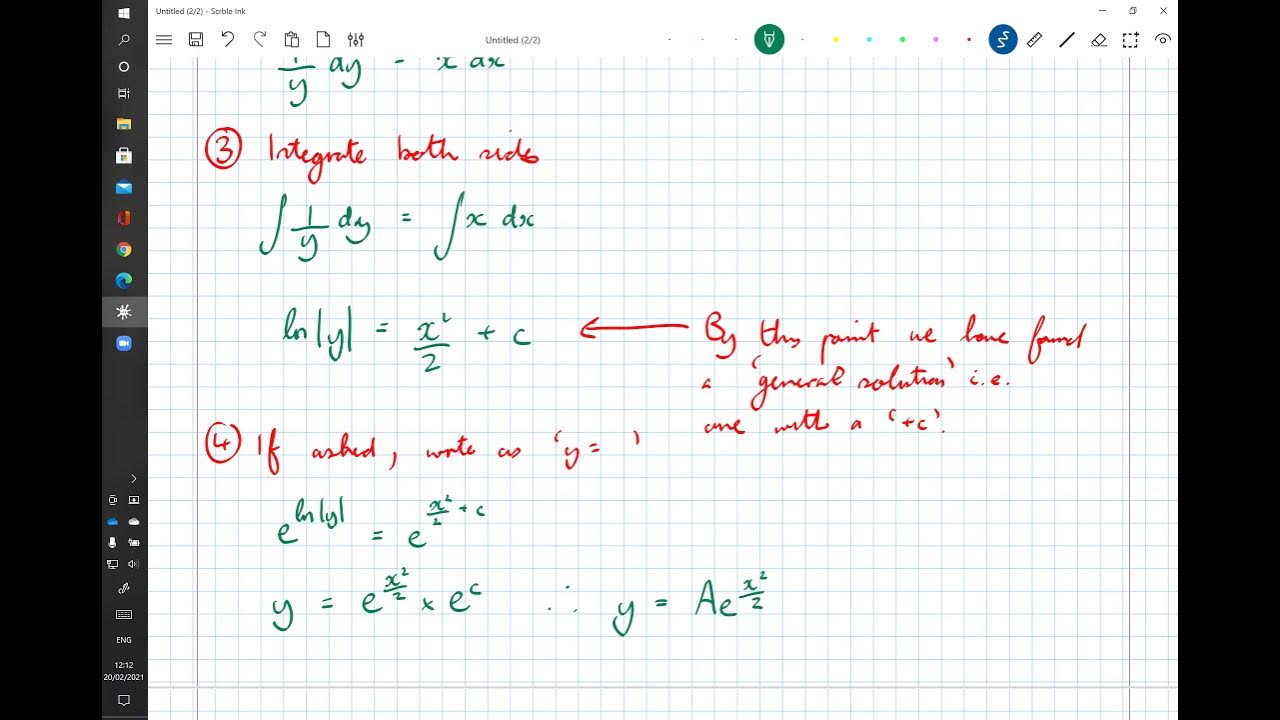 Untitled (2/2) - Scrble Ink
Untitled (2/2)
1/y dy = x dx
③ Integrate both sides
∫ 1/y dy = ∫ x dx
ln|y| = x²/2 + c
By this point we have found
a 'general solution' i.e.
one with a '+c'.
④ If asked, write as 'y = '
e^(ln|y|) = e^(x²/2 + c)
y = e^(x²/2) × e^c ∴ y = Ae^(x²/2)
ENG
12:12
20/02/2021